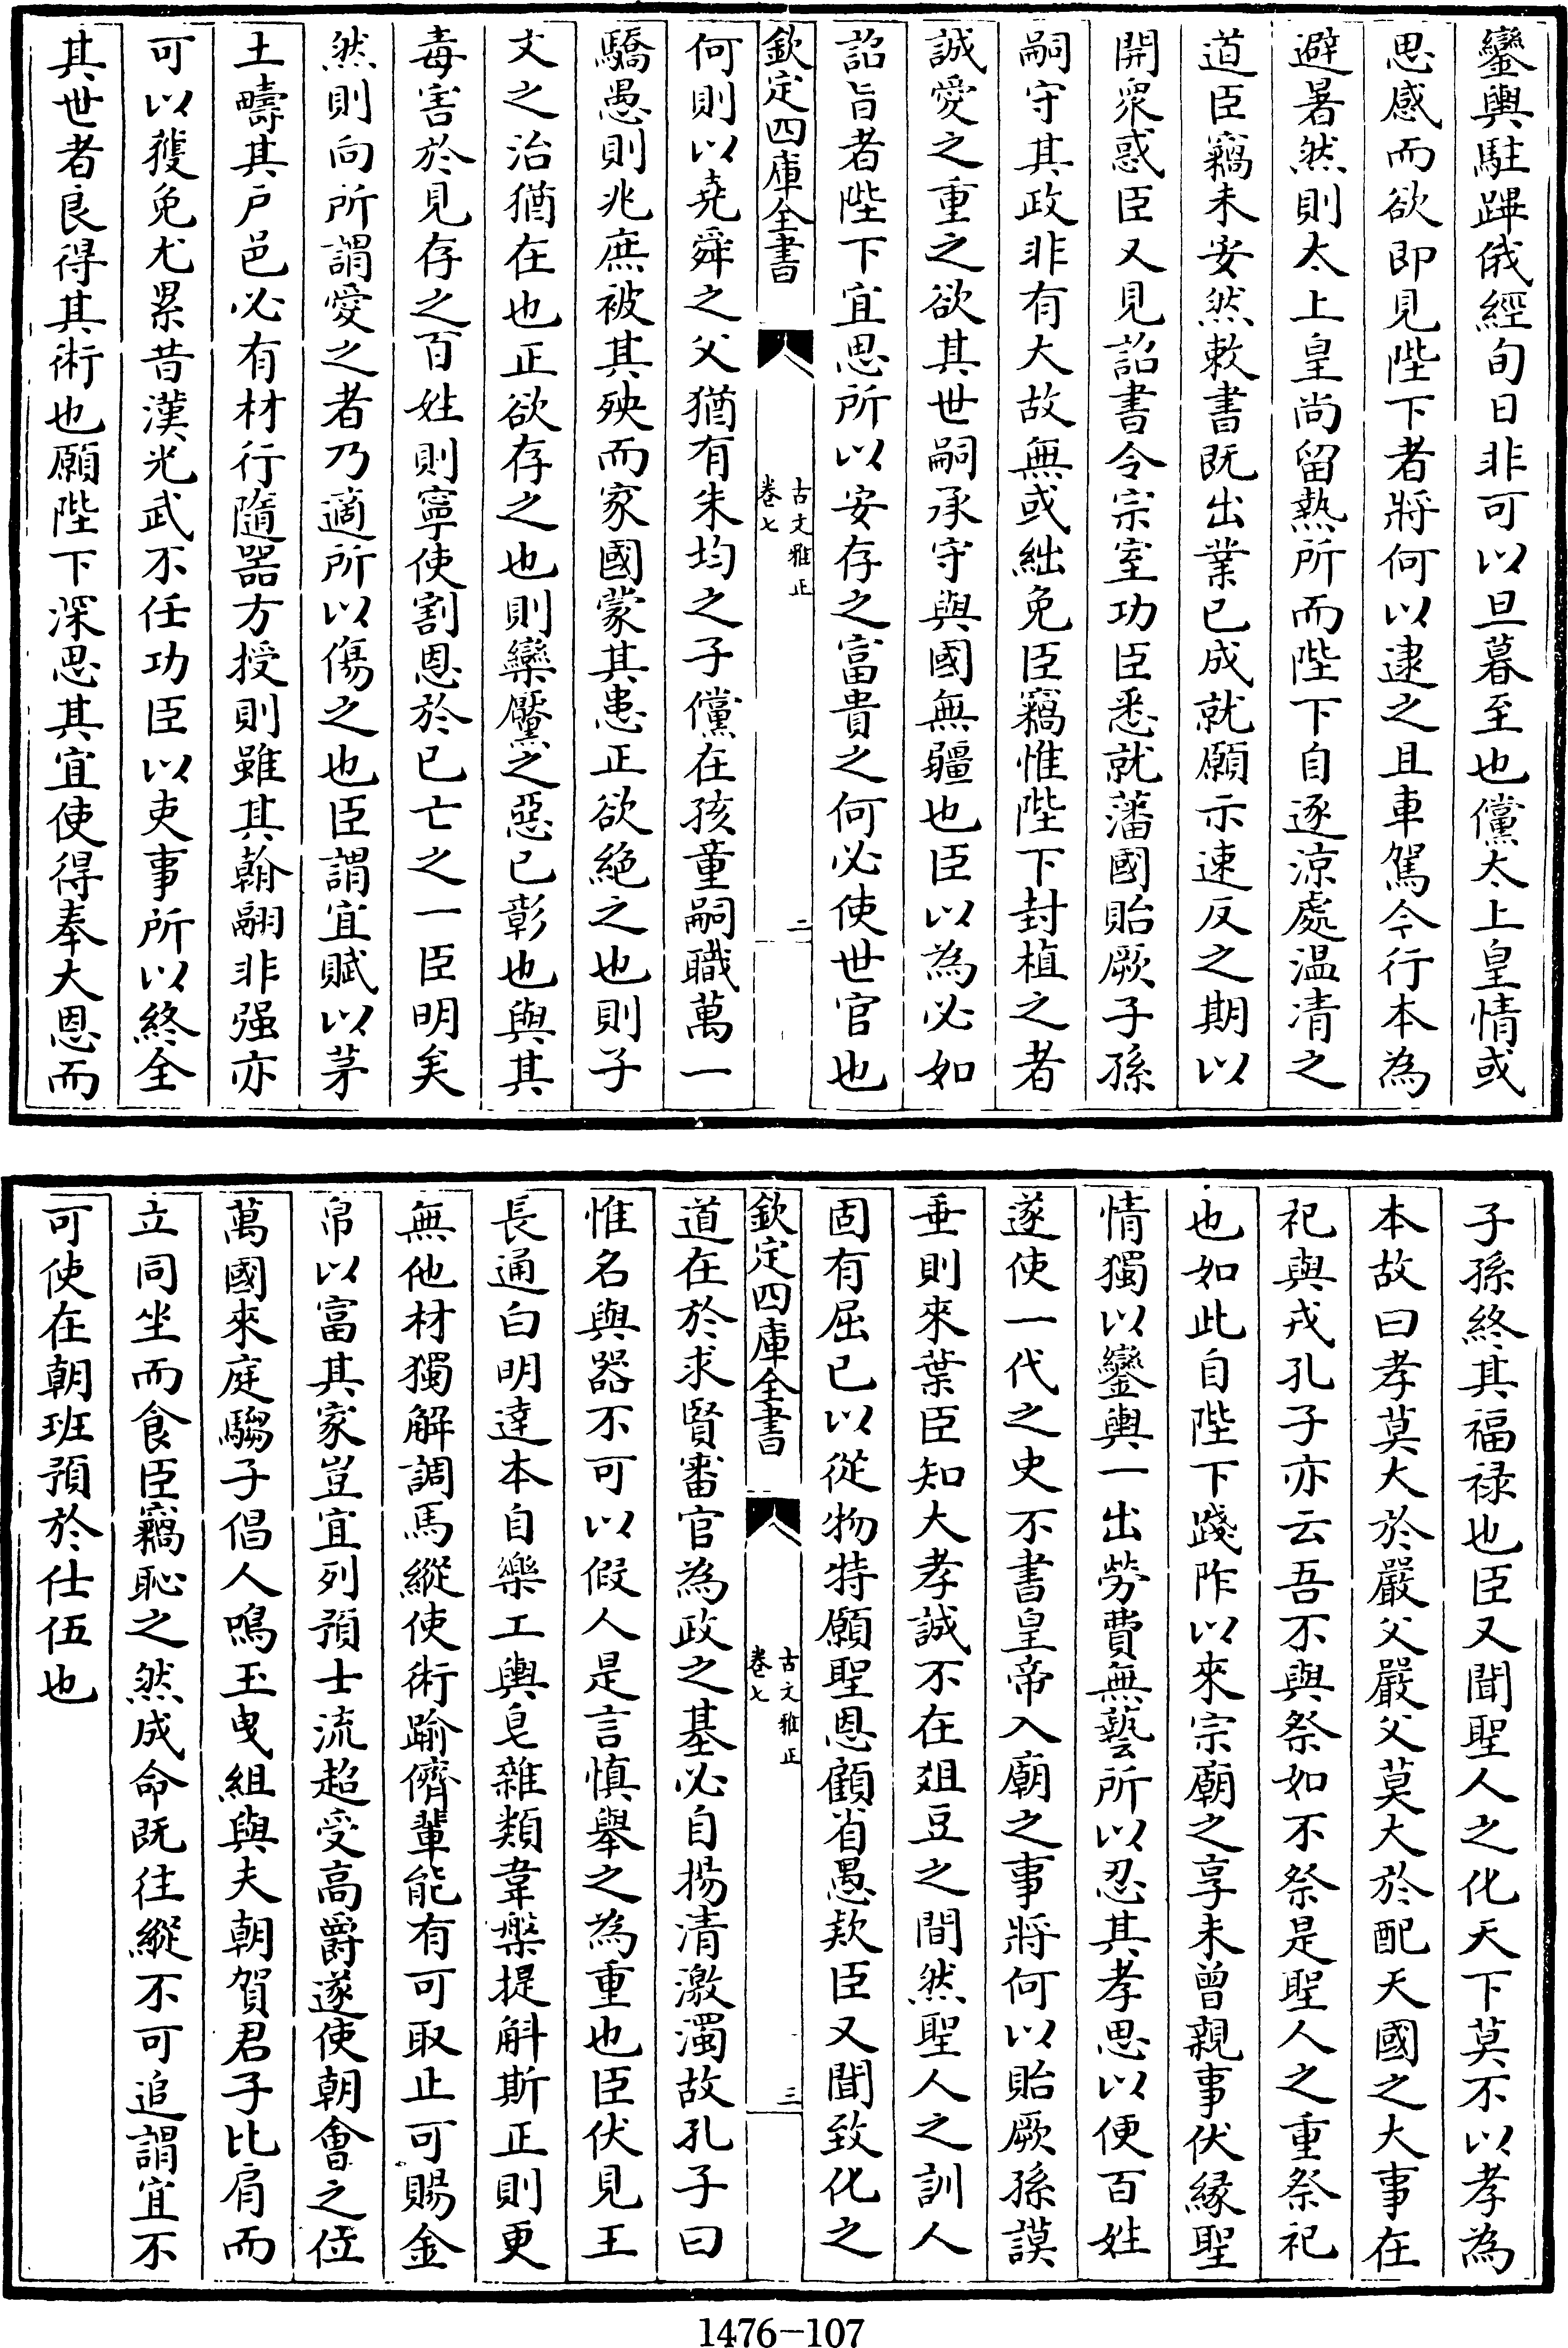 鑾輿駐蹕俄經旬日非可以旦暮至也儻太上皇情或
思感而欲即見陛下者將何以逮之且車駕今行本為
避暑然則太上皇尚留熱所而陛下自逐涼處温清之
道臣竊未安然敕書既出業已成就願示速反之期以
開衆惑臣又見詔書令宗室功臣悉就藩國貽厥子孫
嗣守其政非有大故無或絀免臣竊惟陛下封植之者
誠愛之重之欲其世嗣承守與國無疆也臣以為必如
詔旨者陛下宜思所以安存之富貴之何必使世官也
欽定四庫全書
古文雅正
卷七
二
何則以堯舜之父猶有朱均之子儻在孩童嗣職萬一
驕愚則兆庶被其殃而家國蒙其患正欲絶之也則子
文之治猶在也正欲存之也則欒黶之惡已彰也與其
毒害於見存之百姓則寧使割恩於已亡之一臣明矣
然則向所謂愛之者乃適所以傷之也臣謂宜賦以茅
土疇其戶邑必有材行隨器方授則雖其翰翮非强亦
可以獲免尤累昔漢光武不任功臣以吏事所以終全
其世者良得其術也願陛下深思其宜使得奉大恩而
子孫終其福禄也臣又聞聖人之化天下莫不以孝為
本故曰孝莫大於嚴父嚴父莫大於配天國之大事在
祀與戎孔子亦云吾不與祭如不祭是聖人之重祭祀
也如此自陛下踐阼以來宗廟之享未曾親事伏緣聖
情獨以鑾輿一出勞費無藝所以忍其孝思以便百姓
遂使一代之史不書皇帝入廟之事將何以貽厥孫謨
垂則來葉臣知大孝誠不在俎豆之間然聖人之訓人
固有屈已以從物特願聖恩顧省愚欵臣又聞致化之
欽定四庫全書
古文雅正
卷七
三
道在於求賢審官為政之基必自揚清激濁故孔子曰
惟名與器不可以假人是言慎舉之為重也臣伏見王
長通白明達本自樂工輿皂雜類韋槃提斛斯正則更
無他材獨解調馬縱使術踰儕輩能有可取止可賜金
帛以富其家豈宜列預士流超受高爵遂使朝會之位
萬國來庭騶子倡人鳴玉曳組與夫朝賀君子比肩而
立同坐而食臣竊恥之然成命既往縱不可追謂宜不
可使在朝班預於仕伍也
1476-107